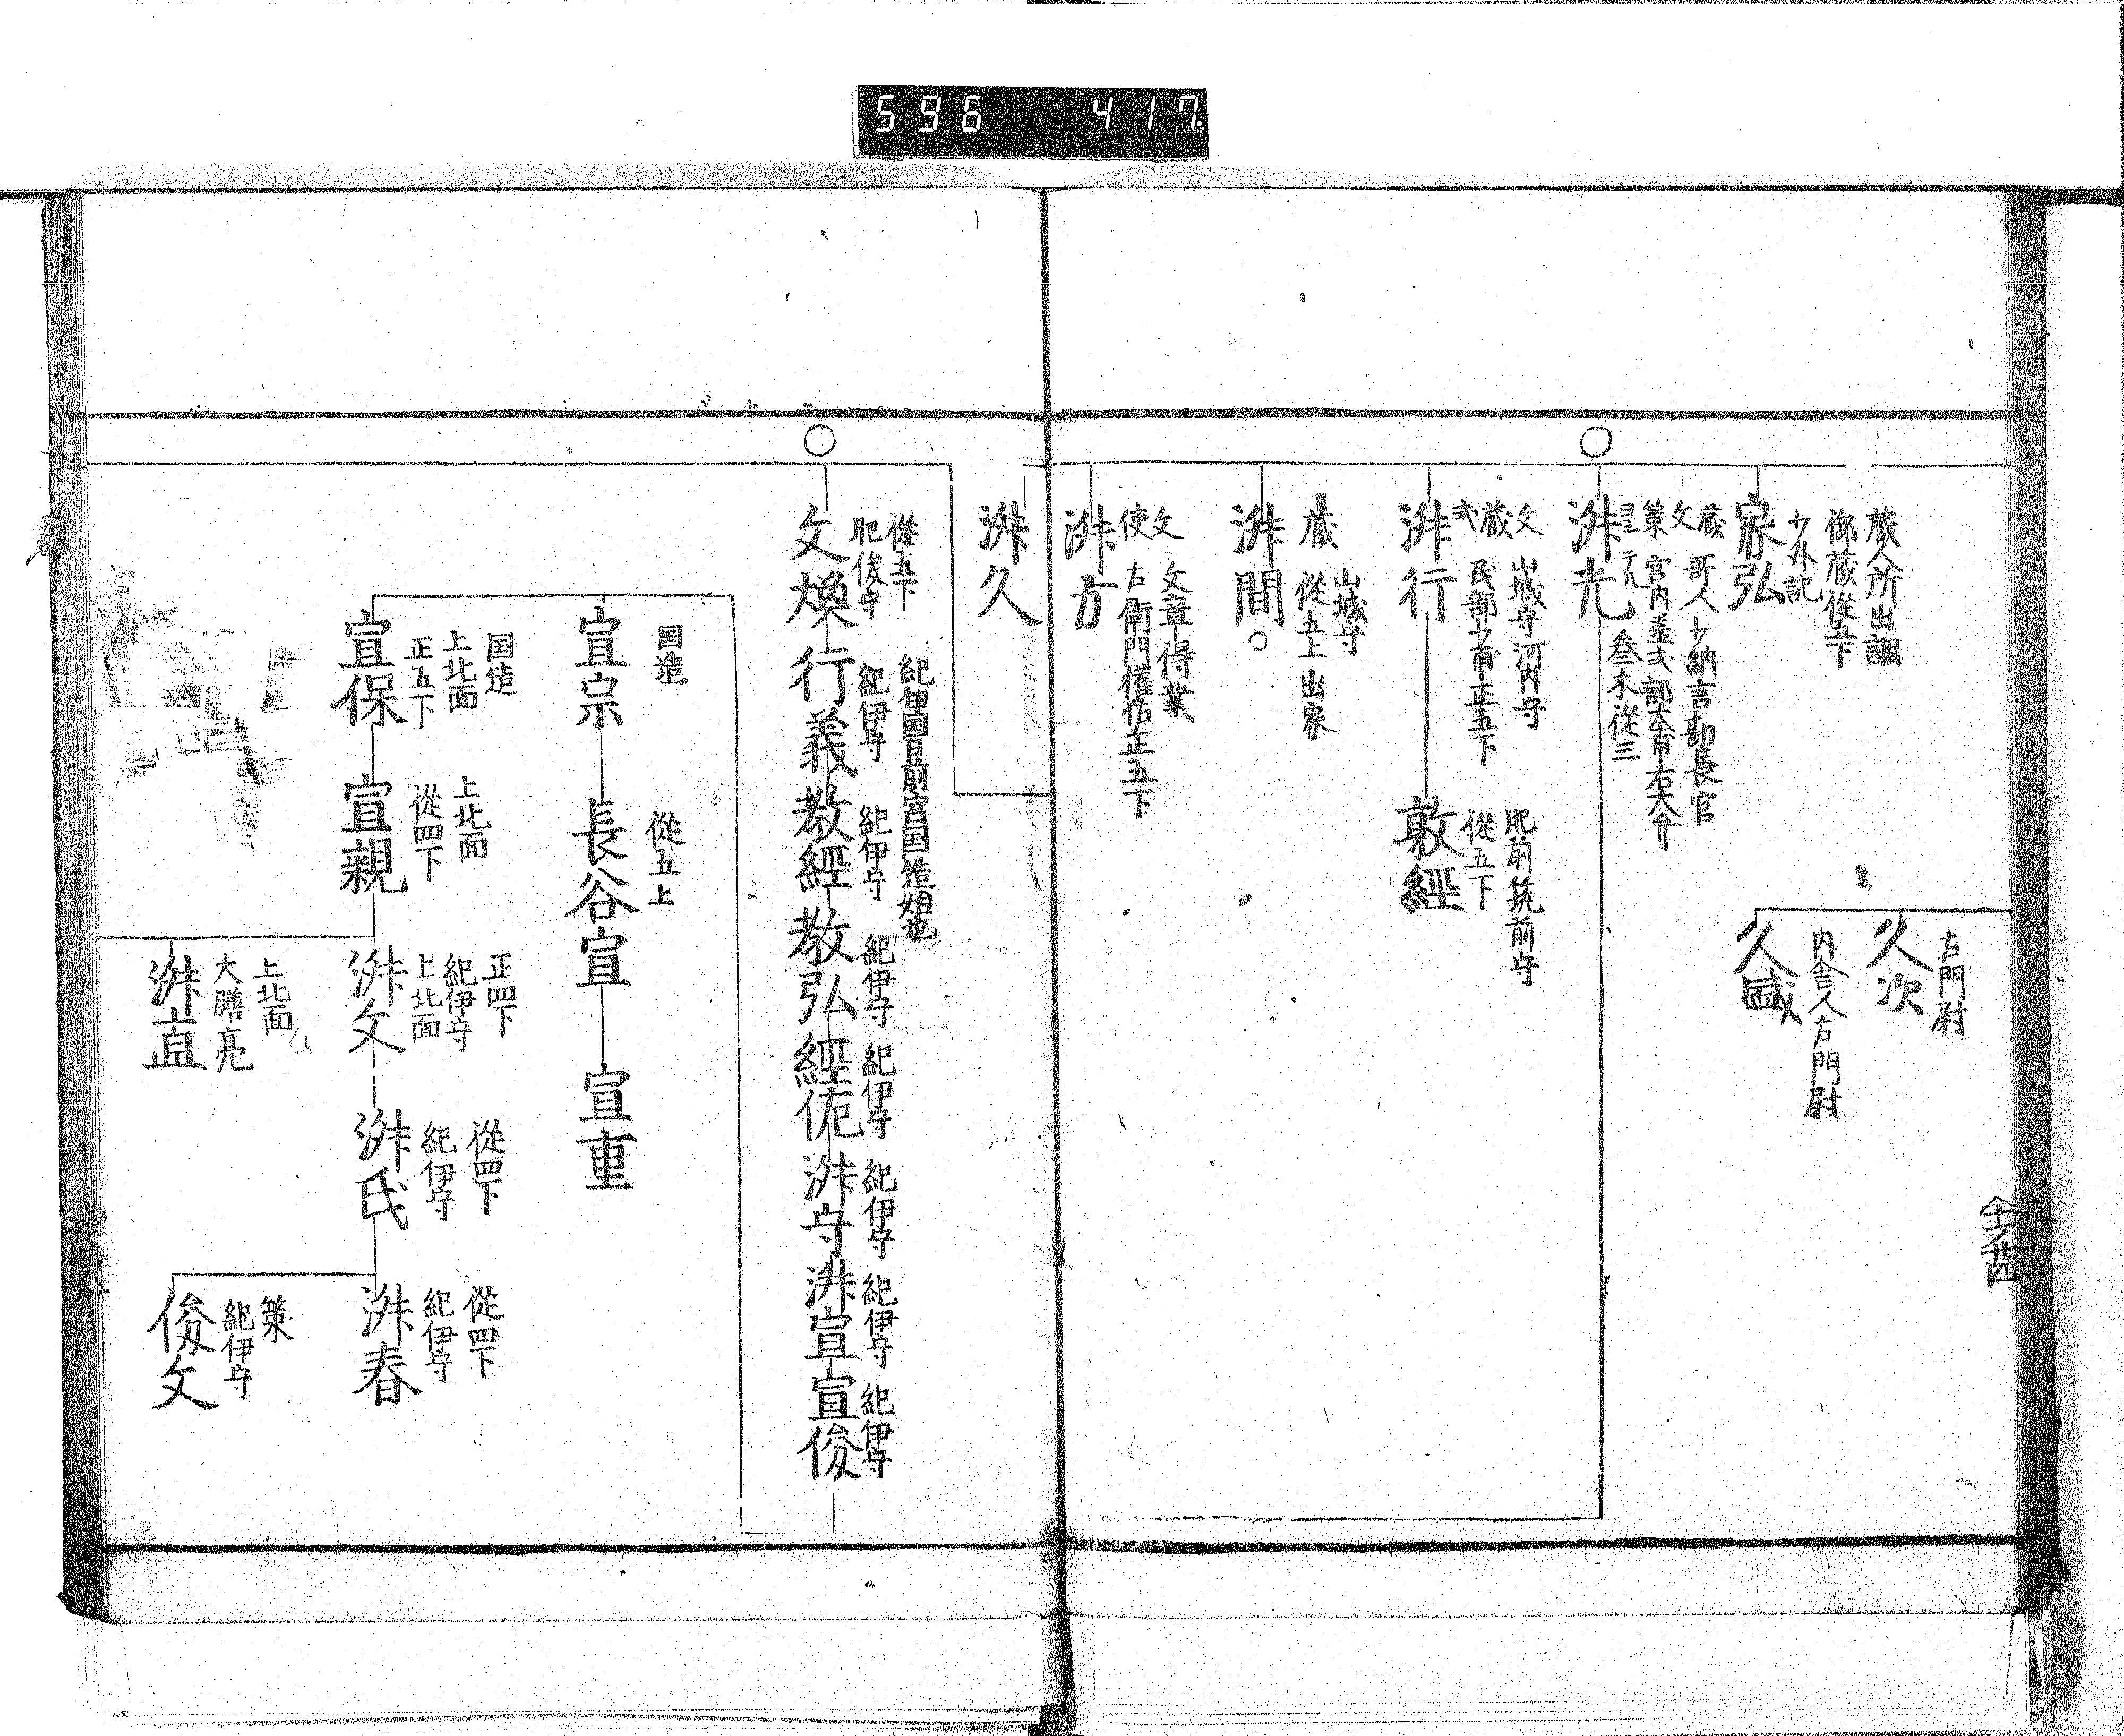 596 417
蔵人所出調
御蔵從五下
少外記
家弘
右門尉
久次
内舎人右門尉
久盛
蔵 哥人少納言勘長官
文
策 宮内並式部大甫右大弁
叄木從三
淑光
文 山城守河内守
蔵 民部少甫正五下
式
淑行
肥前筑前守
從五下
敦經
山城守
蔵 從五上出家
淑間
文 文章得業
使 右衛門權佐正五下
淑方
淑久
從五下
肥後守
文煥
紀伊国日前宮国造始也
紀伊守
行義
紀伊守
教經
紀伊守
教弘
紀伊守
經佗
紀伊守
淑守
紀伊守
淑宣
紀伊守
宣俊
国造
宣宗
從五上
長谷宣
宣重
国造
上北面
正五下
宣保
上北面
從四下
宣親
正四下
紀伊守
上北面
淑文
從四下
紀伊守
淑氏
從四下
紀伊守
淑春
上北面
大膳亮
淑直
策
紀伊守
俊文